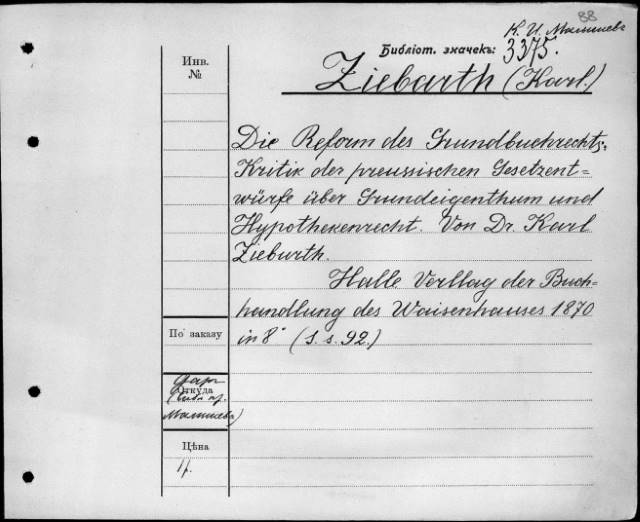 88
К. И. Малышевъ
Библіот. значекъ: 3375.
Инв.
№
Ziebarth (Karl.)
Die Reform des Grundbuchrechts.
Kritik der preussischen Gesetzent=
würfe über Grundeigenthum und
Hypothekenrecht. Von Dr. Karl
Ziebarth.
Halle Verllag der Buch-
handlung des Waisenhauses 1870
По заказу
in 8° (1. s. 92.)
Даръ
Откуда
Малышева)
Цѣна
1р.